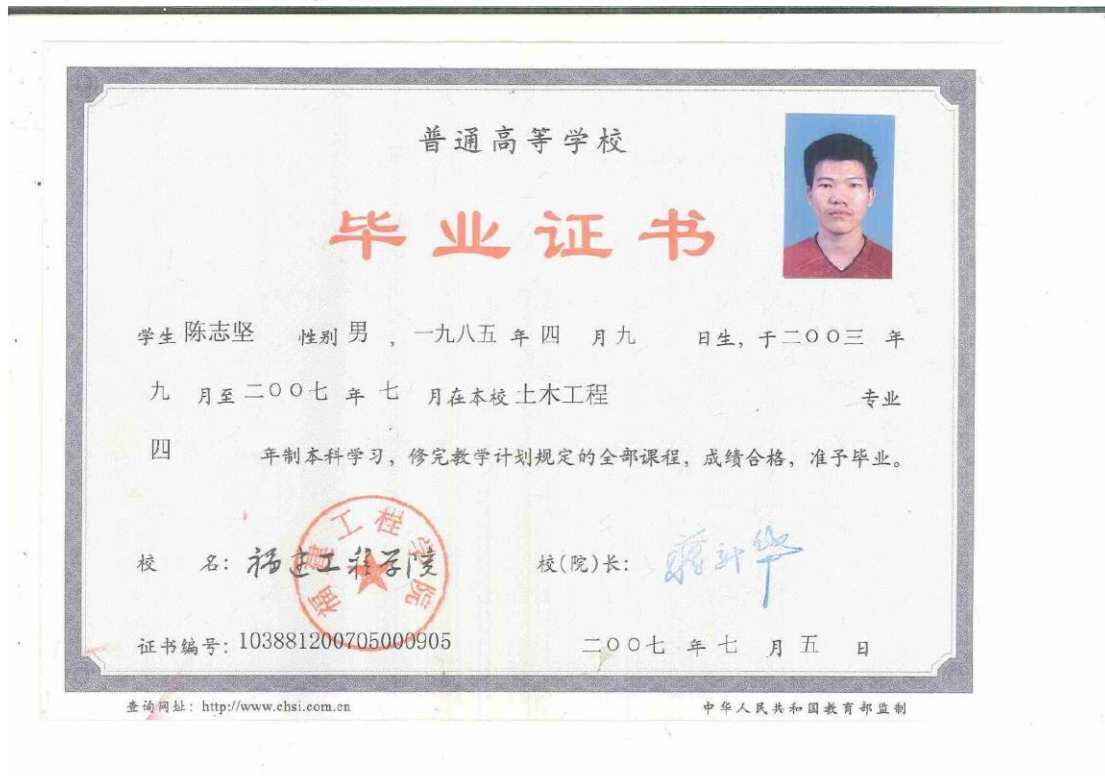 普通高等学校
毕业证书
学生 陈志坚 性别 男 ，一九八五 年 四 月 九 日生，于二〇〇三 年
九 月至 二〇〇七 年 七 月在本校 土木工程 专业
四 年制本科学习，修完教学计划规定的全部课程，成绩合格，准予毕业。
校 名：福建工程学院 校(院)长：蒋新华
福建工程学院
证书编号：103881200705000905 二〇〇七 年 七 月 五 日
查询网址：http://www.chsi.com.cn 中华人民共和国教育部监制